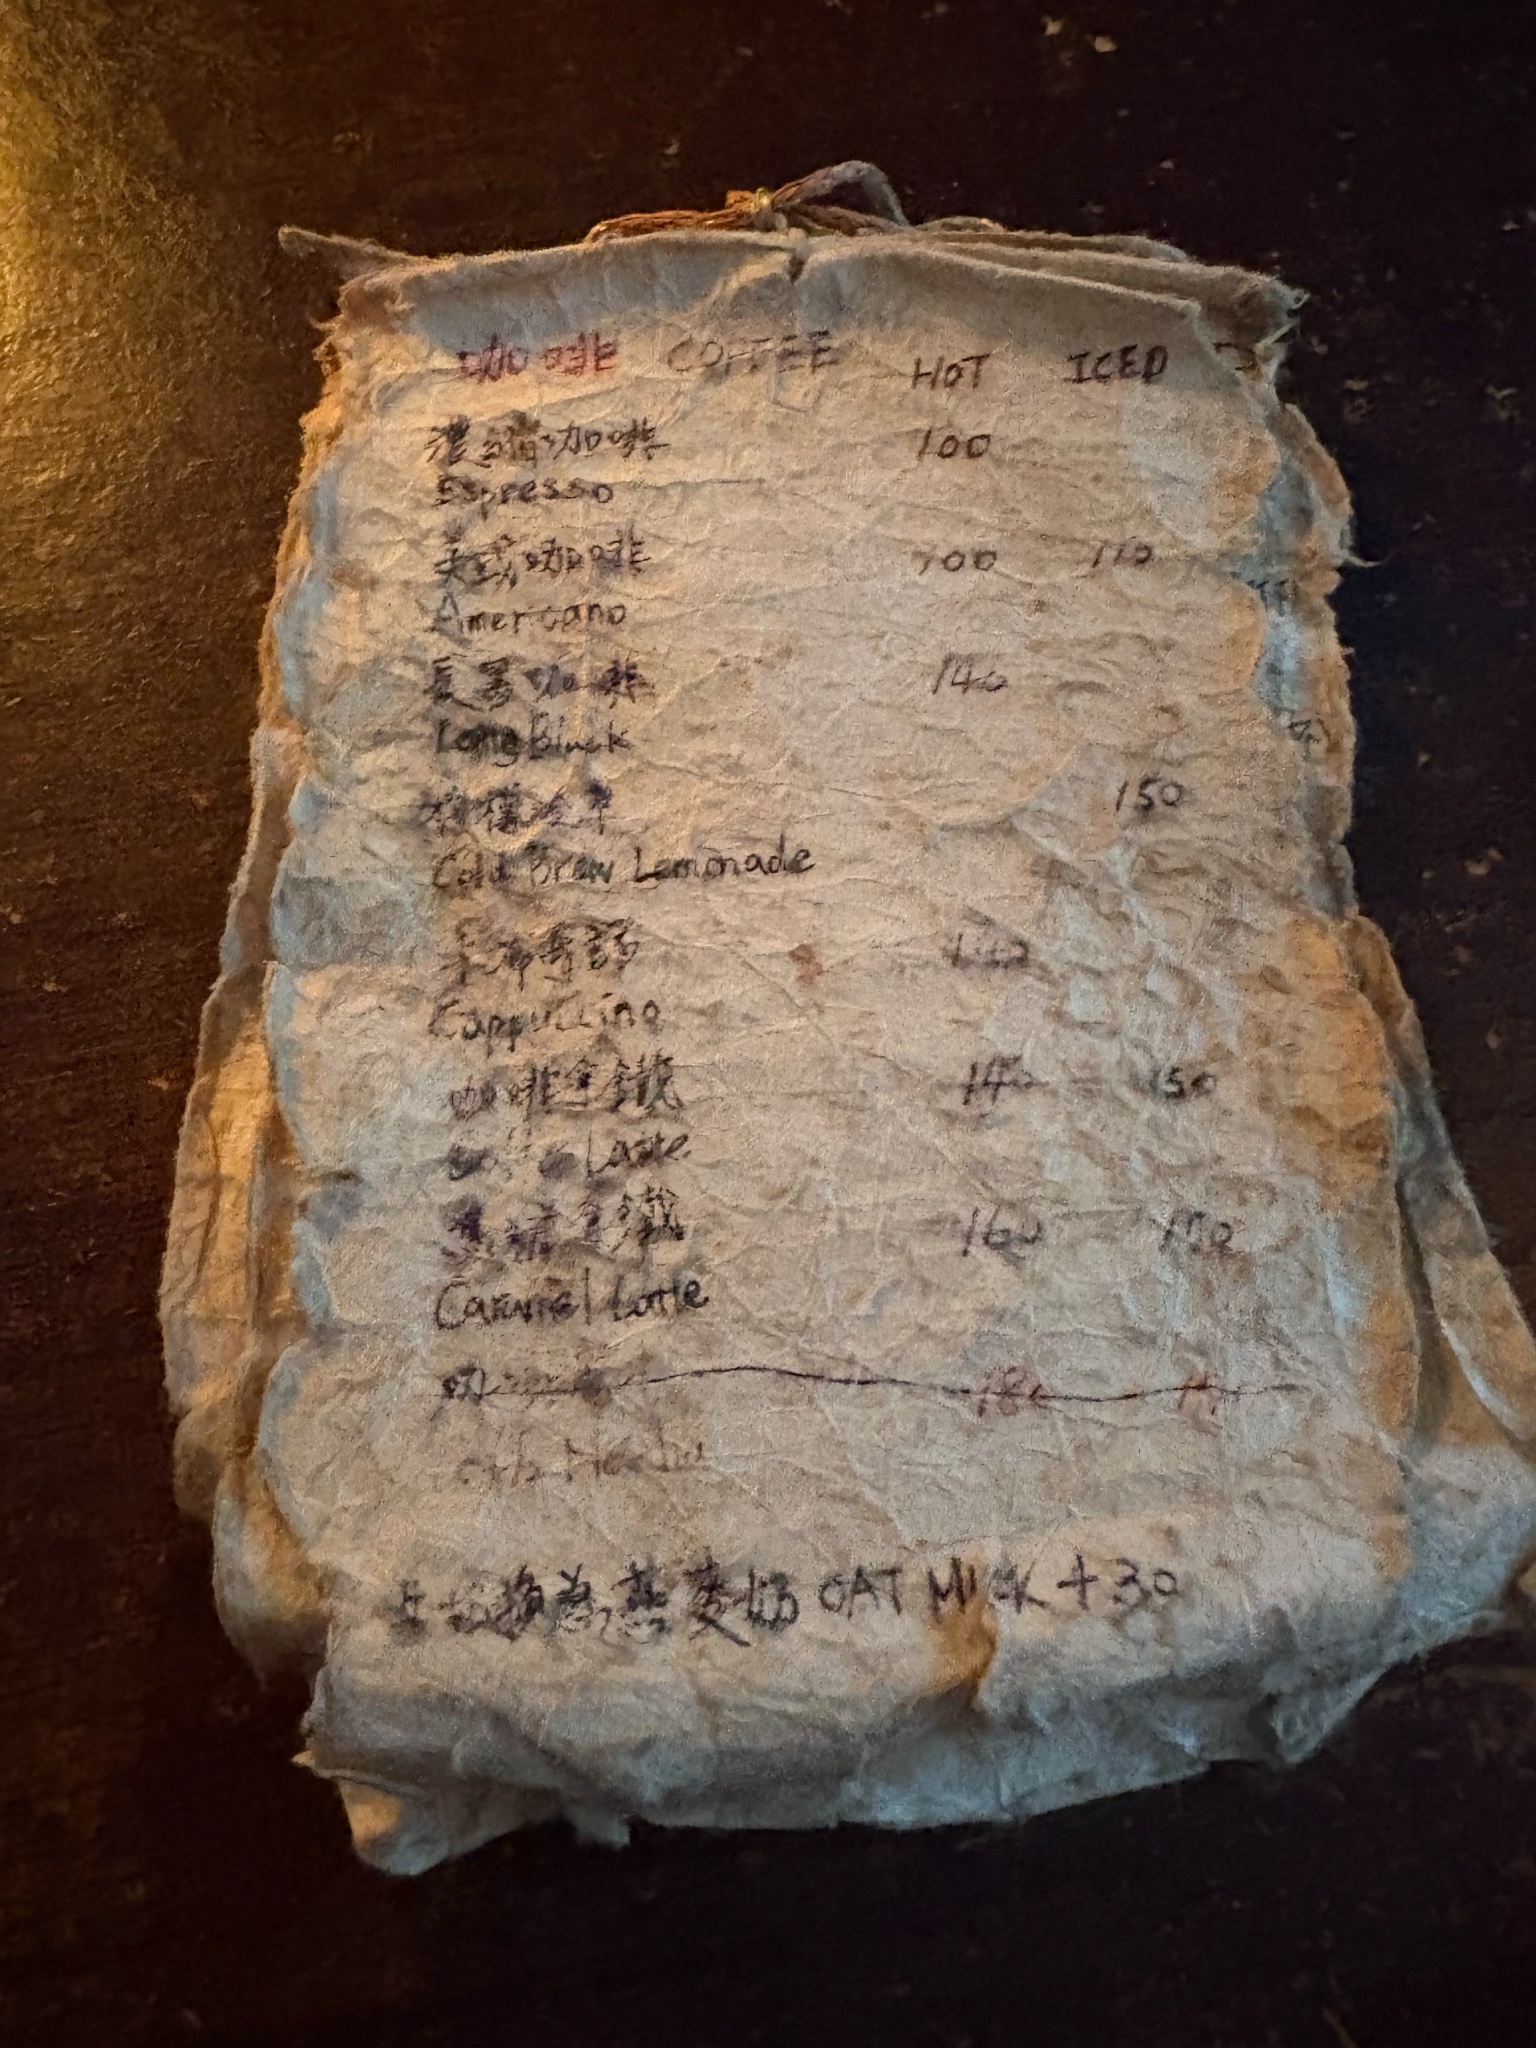 咖啡 COFFEE HOT ICED
濃縮咖啡 100
Espresso
美式咖啡 100 110
Americano
長黑咖啡 140
Long Black
檸檬冷萃 150
Cold Brew Lemonade
卡布奇諾 140
Cappuccino
咖啡拿鐵 140 150
Latte
拿鐵 160
Caramel Latte
換為燕麥奶 OAT MILK +30